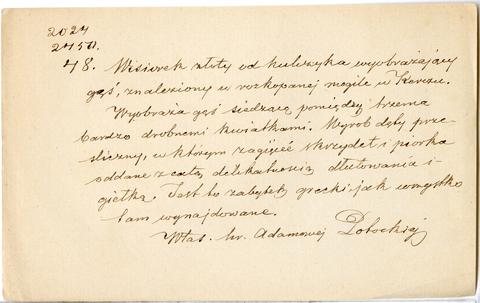 2024
2450.
48. Wisiorek złoty od kulczyka wyobrażający
gęś, znaleziony w rozkopanej mogile w Kerczu.
Wyobraża gęś siedzącą pomiędzy trzema
bardzo drobnemi kwiatkami. Wyrób dęty prze
śliczny, w którym zagięcć skrzydeł i piórka
oddane z całą delikatnością dłutowania i
giętką. Jest to zabytek grecki, jak wszystko
tam wynajdowane.
Włas. hr. Adamowej Potockiéj